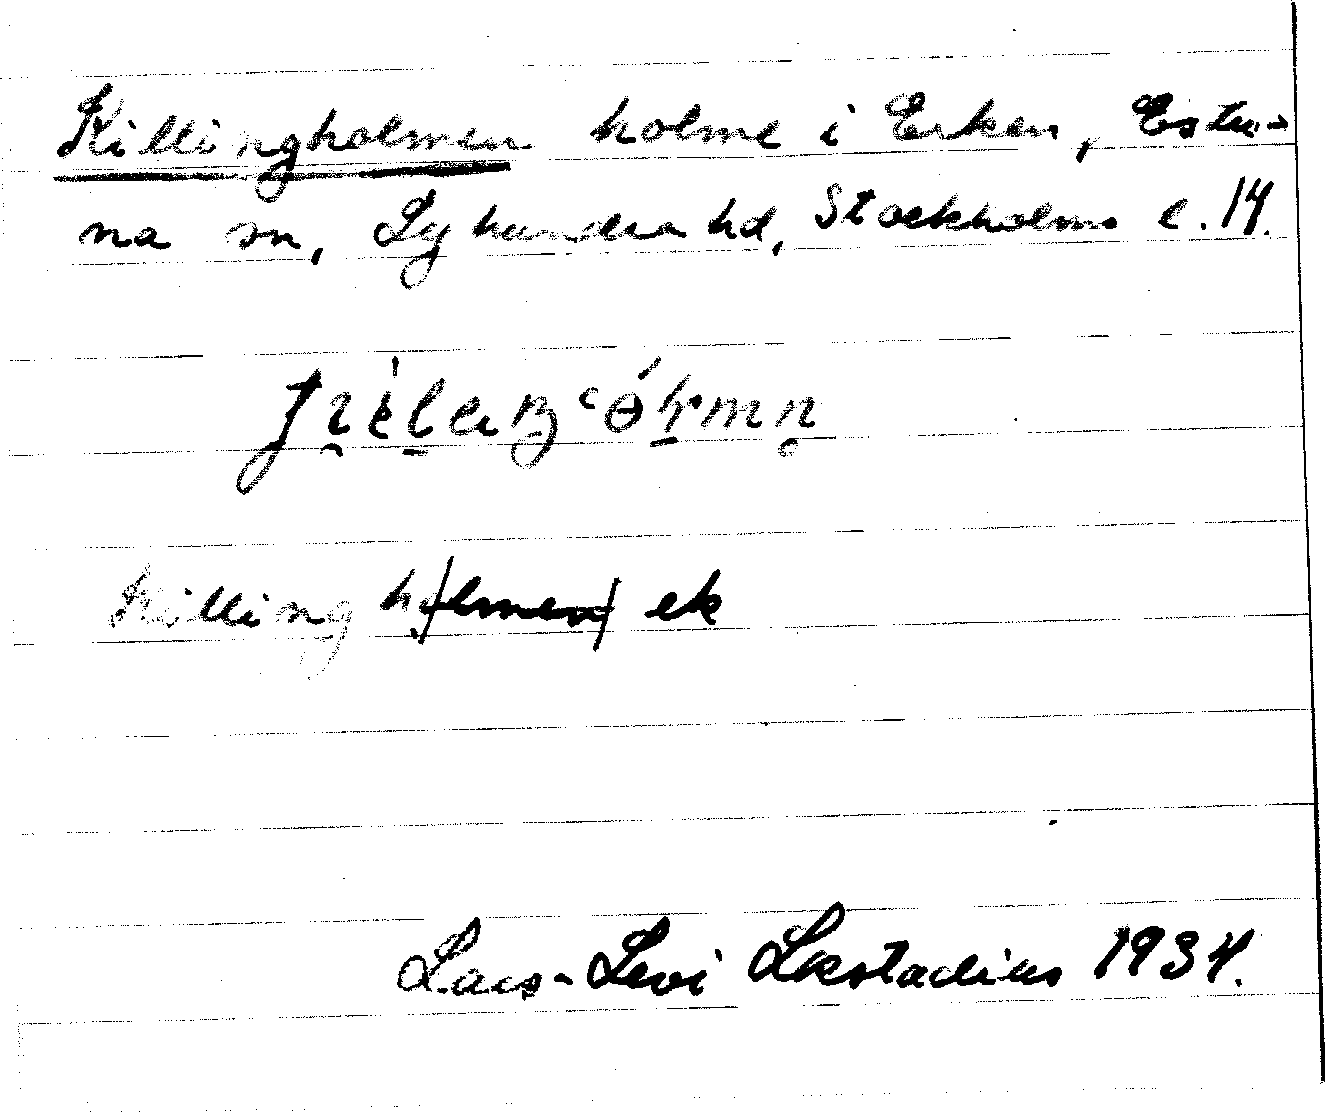 Killingholmen holme i Erken, Estu-
na sn, Lyhundra hd, Stockholms l. 14.
Killing holmen ek
Lars-Levi Læstadius 1934.